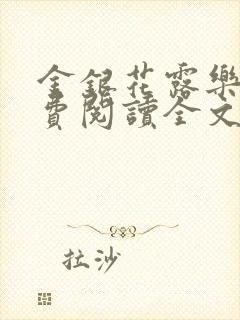 金銀花露樂
費閱讀全文
拉沙